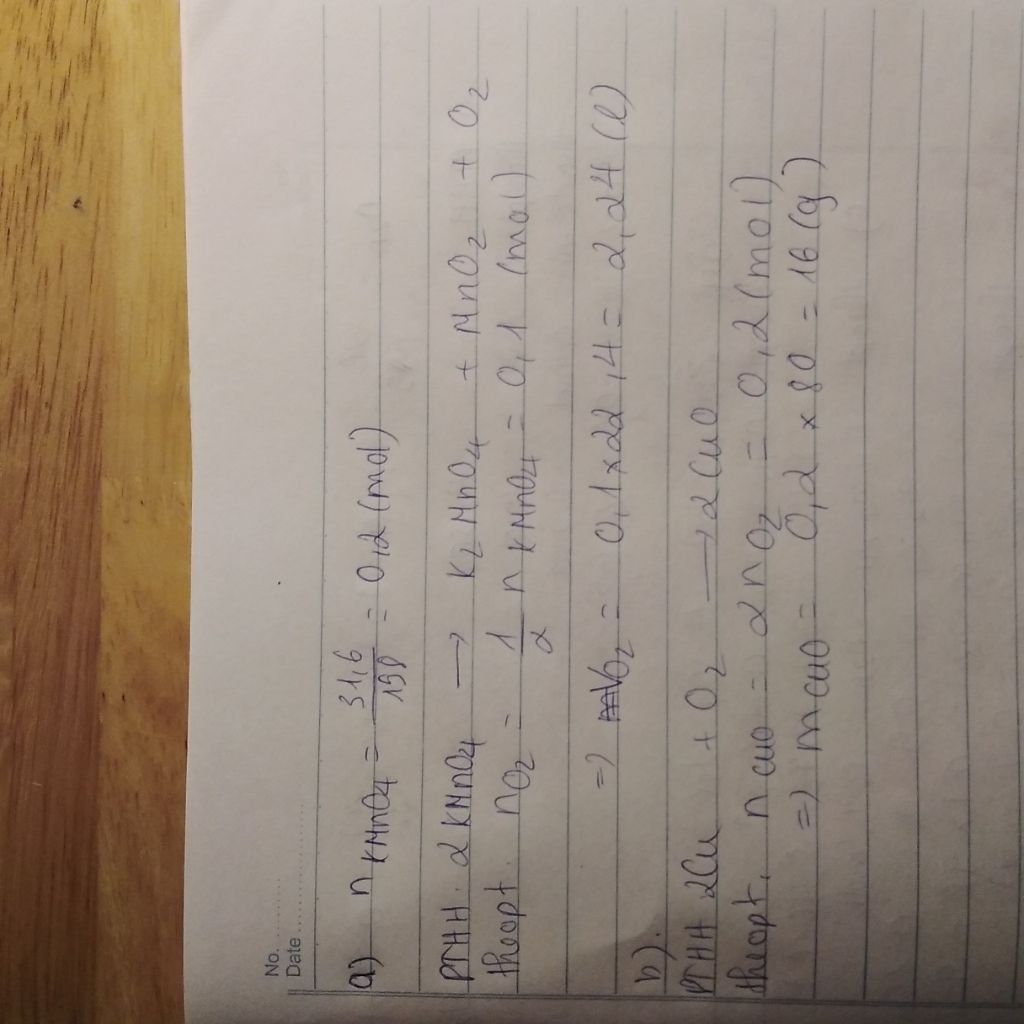 No.
Date
a) n KMnO4 = 31,6 / 158 = 0,2 (mol)
PTHH. 2 KMnO4 → K2 MnO4 + MnO2 + O2
theo pt. nO2 = 1/2 n KMnO4 = 0,1 (mol)
=> VO2 = 0,1 x 22,4 = 2,24 (l)
b).
PTHH 2Cu + O2 → 2 CuO
theo pt. n CuO = 2 n O2 = 0,2 (mol)
=> m CuO = 0,2 x 80 = 16 (g)